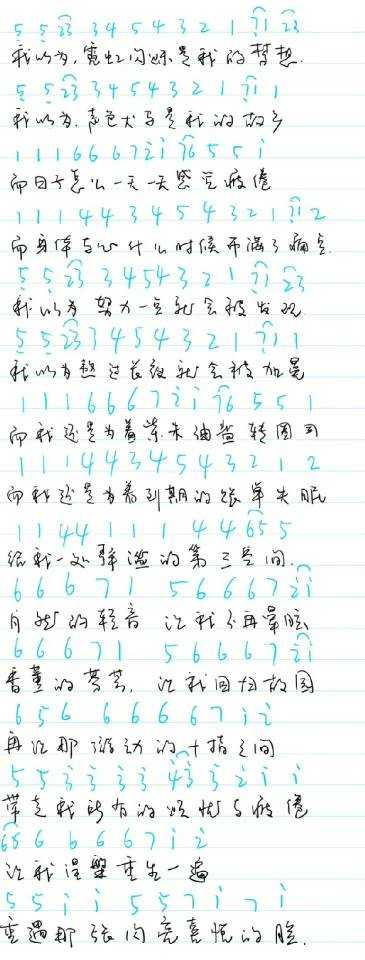 5 5 23 3 4 5 4 3 2 1 71 23
我以为,霓虹闪烁是我的梦想.
5 5 23 3 4 5 4 3 2 1 71 1
我以为.声色犬马是我的故乡
1 1 1 6 6 6 7 2 1 76 5 5 1
而日子怎么一天一天感觉疲倦
1 1 1 4 4 3 4 5 4 3 2 1 71 2
而身体与心什么时候布满了痛点.
5 5 23 3 4 5 4 3 2 1 71 23
我以为 努力一点就会被发现
5 5 23 3 4 5 4 3 2 1 71 1
我以为熬过长夜就会被加冕
1 1 1 6 6 6 7 2 1 76 5 5 1
而我还是为着柴米油盐转圆圈
1 1 1 4 4 3 4 5 4 3 2 1 2
而我还是为着到期的账单失眠
1 1 4 4 1 1 1 4 4 65 5
给我一处的第三空间.
6 6 6 7 1 5 6 6 6 7 21
自然的轻音 让我不再晕眩
6 6 6 7 1 5 6 6 6 7 21
香薰的芬芳, 让我回归故园
6 5 6 6 6 6 6 7 1 2
再让那游动的十指之间
5 5 3 3 3 3 43 3 3 2 1 1
带走我所有的烦忧与疲倦
65 6 6 6 6 7 1 2
让我涅槃重生一遍
5 5 1 1 5 5 7 1 7 1
重遇那张闪亮喜悦的脸.